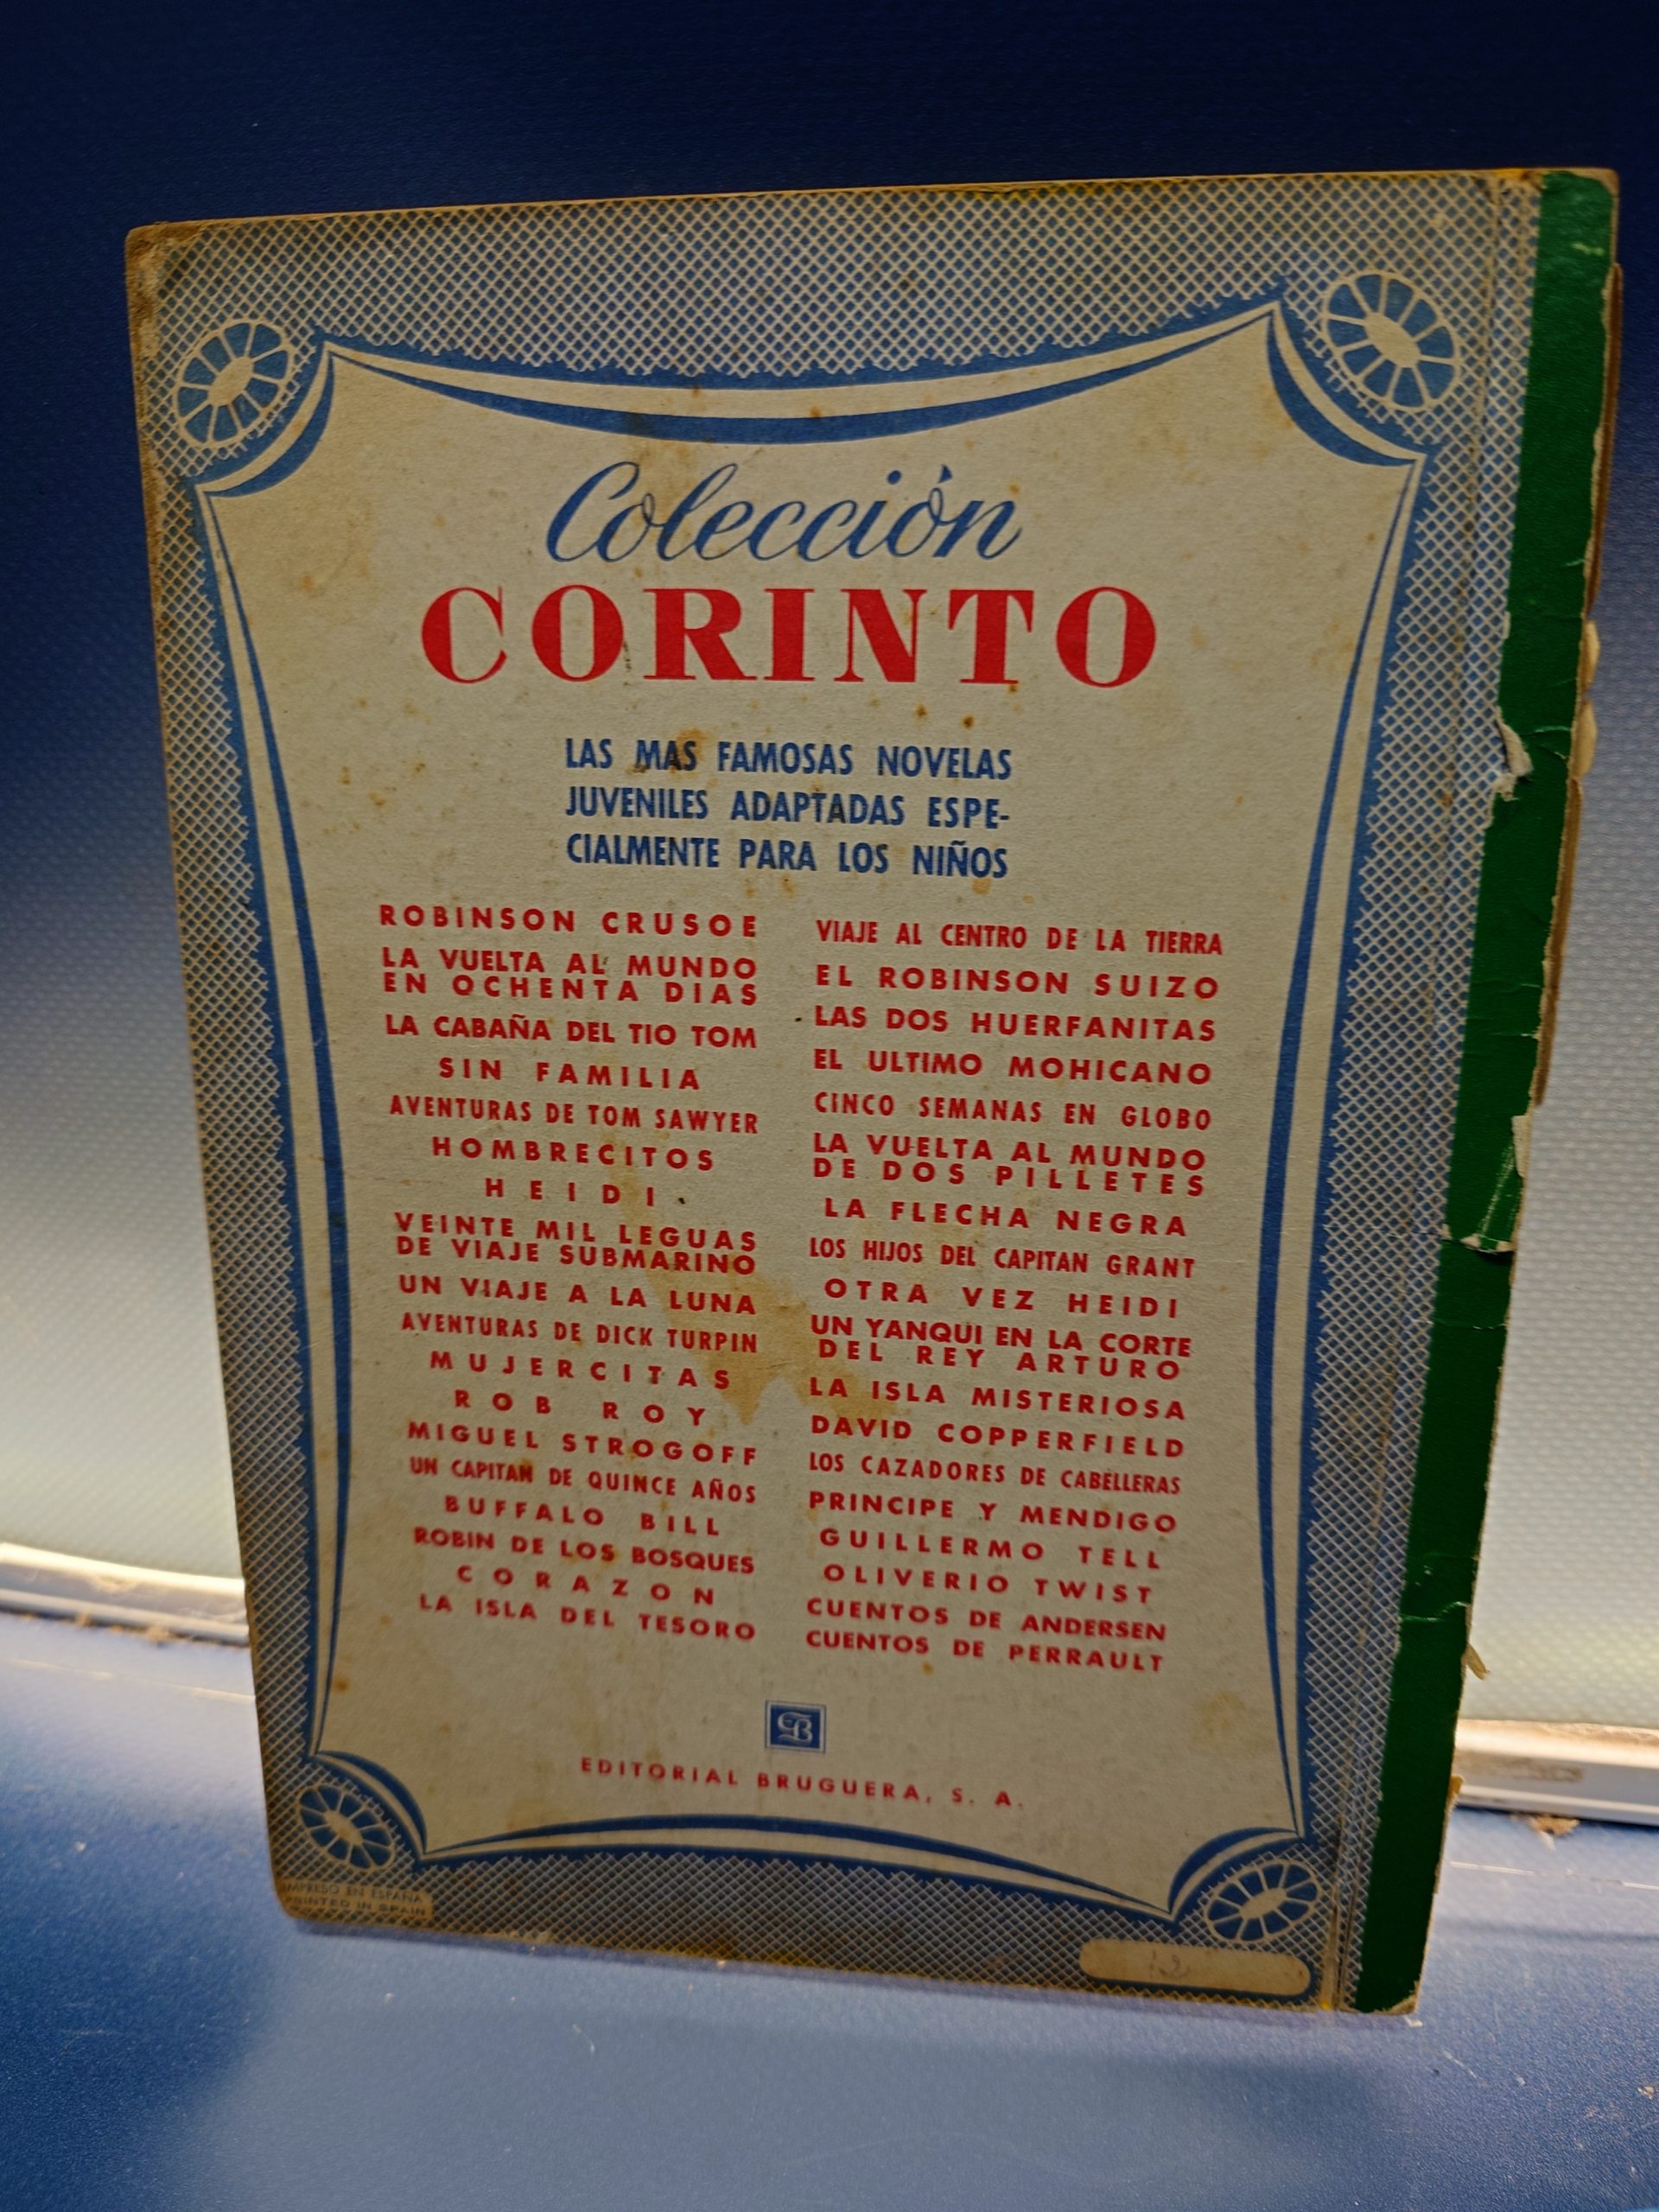 Colección
CORINTO
LAS MAS FAMOSAS NOVELAS
JUVENILES ADAPTADAS ESPE-
CIALMENTE PARA LOS NIÑOS
ROBINSON CRUSOE
LA VUELTA AL MUNDO
EN OCHENTA DIAS
LA CABAÑA DEL TIO TOM
SIN FAMILIA
AVENTURAS DE TOM SAWYER
HOMBRECITOS
HEIDI
VEINTE MIL LEGUAS
DE VIAJE SUBMARINO
UN VIAJE A LA LUNA
AVENTURAS DE DICK TURPIN
MUJERCITAS
ROB ROY
MIGUEL STROGOFF
UN CAPITAN DE QUINCE AÑOS
BUFFALO BILL
ROBIN DE LOS BOSQUES
CORAZON
LA ISLA DEL TESORO
VIAJE AL CENTRO DE LA TIERRA
EL ROBINSON SUIZO
LAS DOS HUERFANITAS
EL ULTIMO MOHICANO
CINCO SEMANAS EN GLOBO
LA VUELTA AL MUNDO
DE DOS PILLETES
LA FLECHA NEGRA
LOS HIJOS DEL CAPITAN GRANT
OTRA VEZ HEIDI
UN YANQUI EN LA CORTE
DEL REY ARTURO
LA ISLA MISTERIOSA
DAVID COPPERFIELD
LOS CAZADORES DE CABELLERAS
PRINCIPE Y MENDIGO
GUILLERMO TELL
OLIVERIO TWIST
CUENTOS DE ANDERSEN
CUENTOS DE PERRAULT
EDITORIAL BRUGUERA, S. A.
IMPRESO EN ESPAÑA
PRINTED IN SPAIN